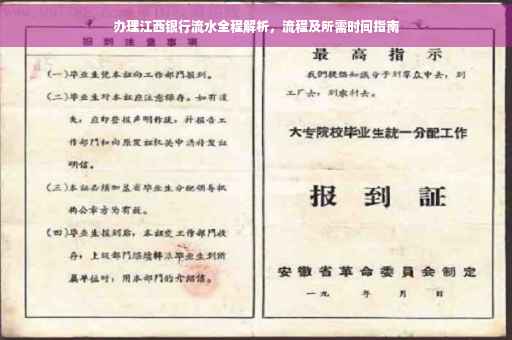 办理江西银行流水全程解析，流程及所需时间指南
报到注意事项
(一)毕业生凭本证向工作部门报到。
(二)毕业生对本证应注意保存。如有遗
失，应即登报声明作废，并报告工
作部门和向原发证机关申请补发证
明信。
(三)本证必须加盖省毕业生分配领导机
构公章方为有效。
(四)毕业生报到后，本证交工作部门收
存；上级部门继续转派毕业生到所
属单位时，用本部门的介绍信。
最高指示
我们提倡知识分子到群众中去，到
工厂去，到农村去。
大专院校毕业生统一分配工作
报到証
安徽省革命委員会制定
一九 年 月 日